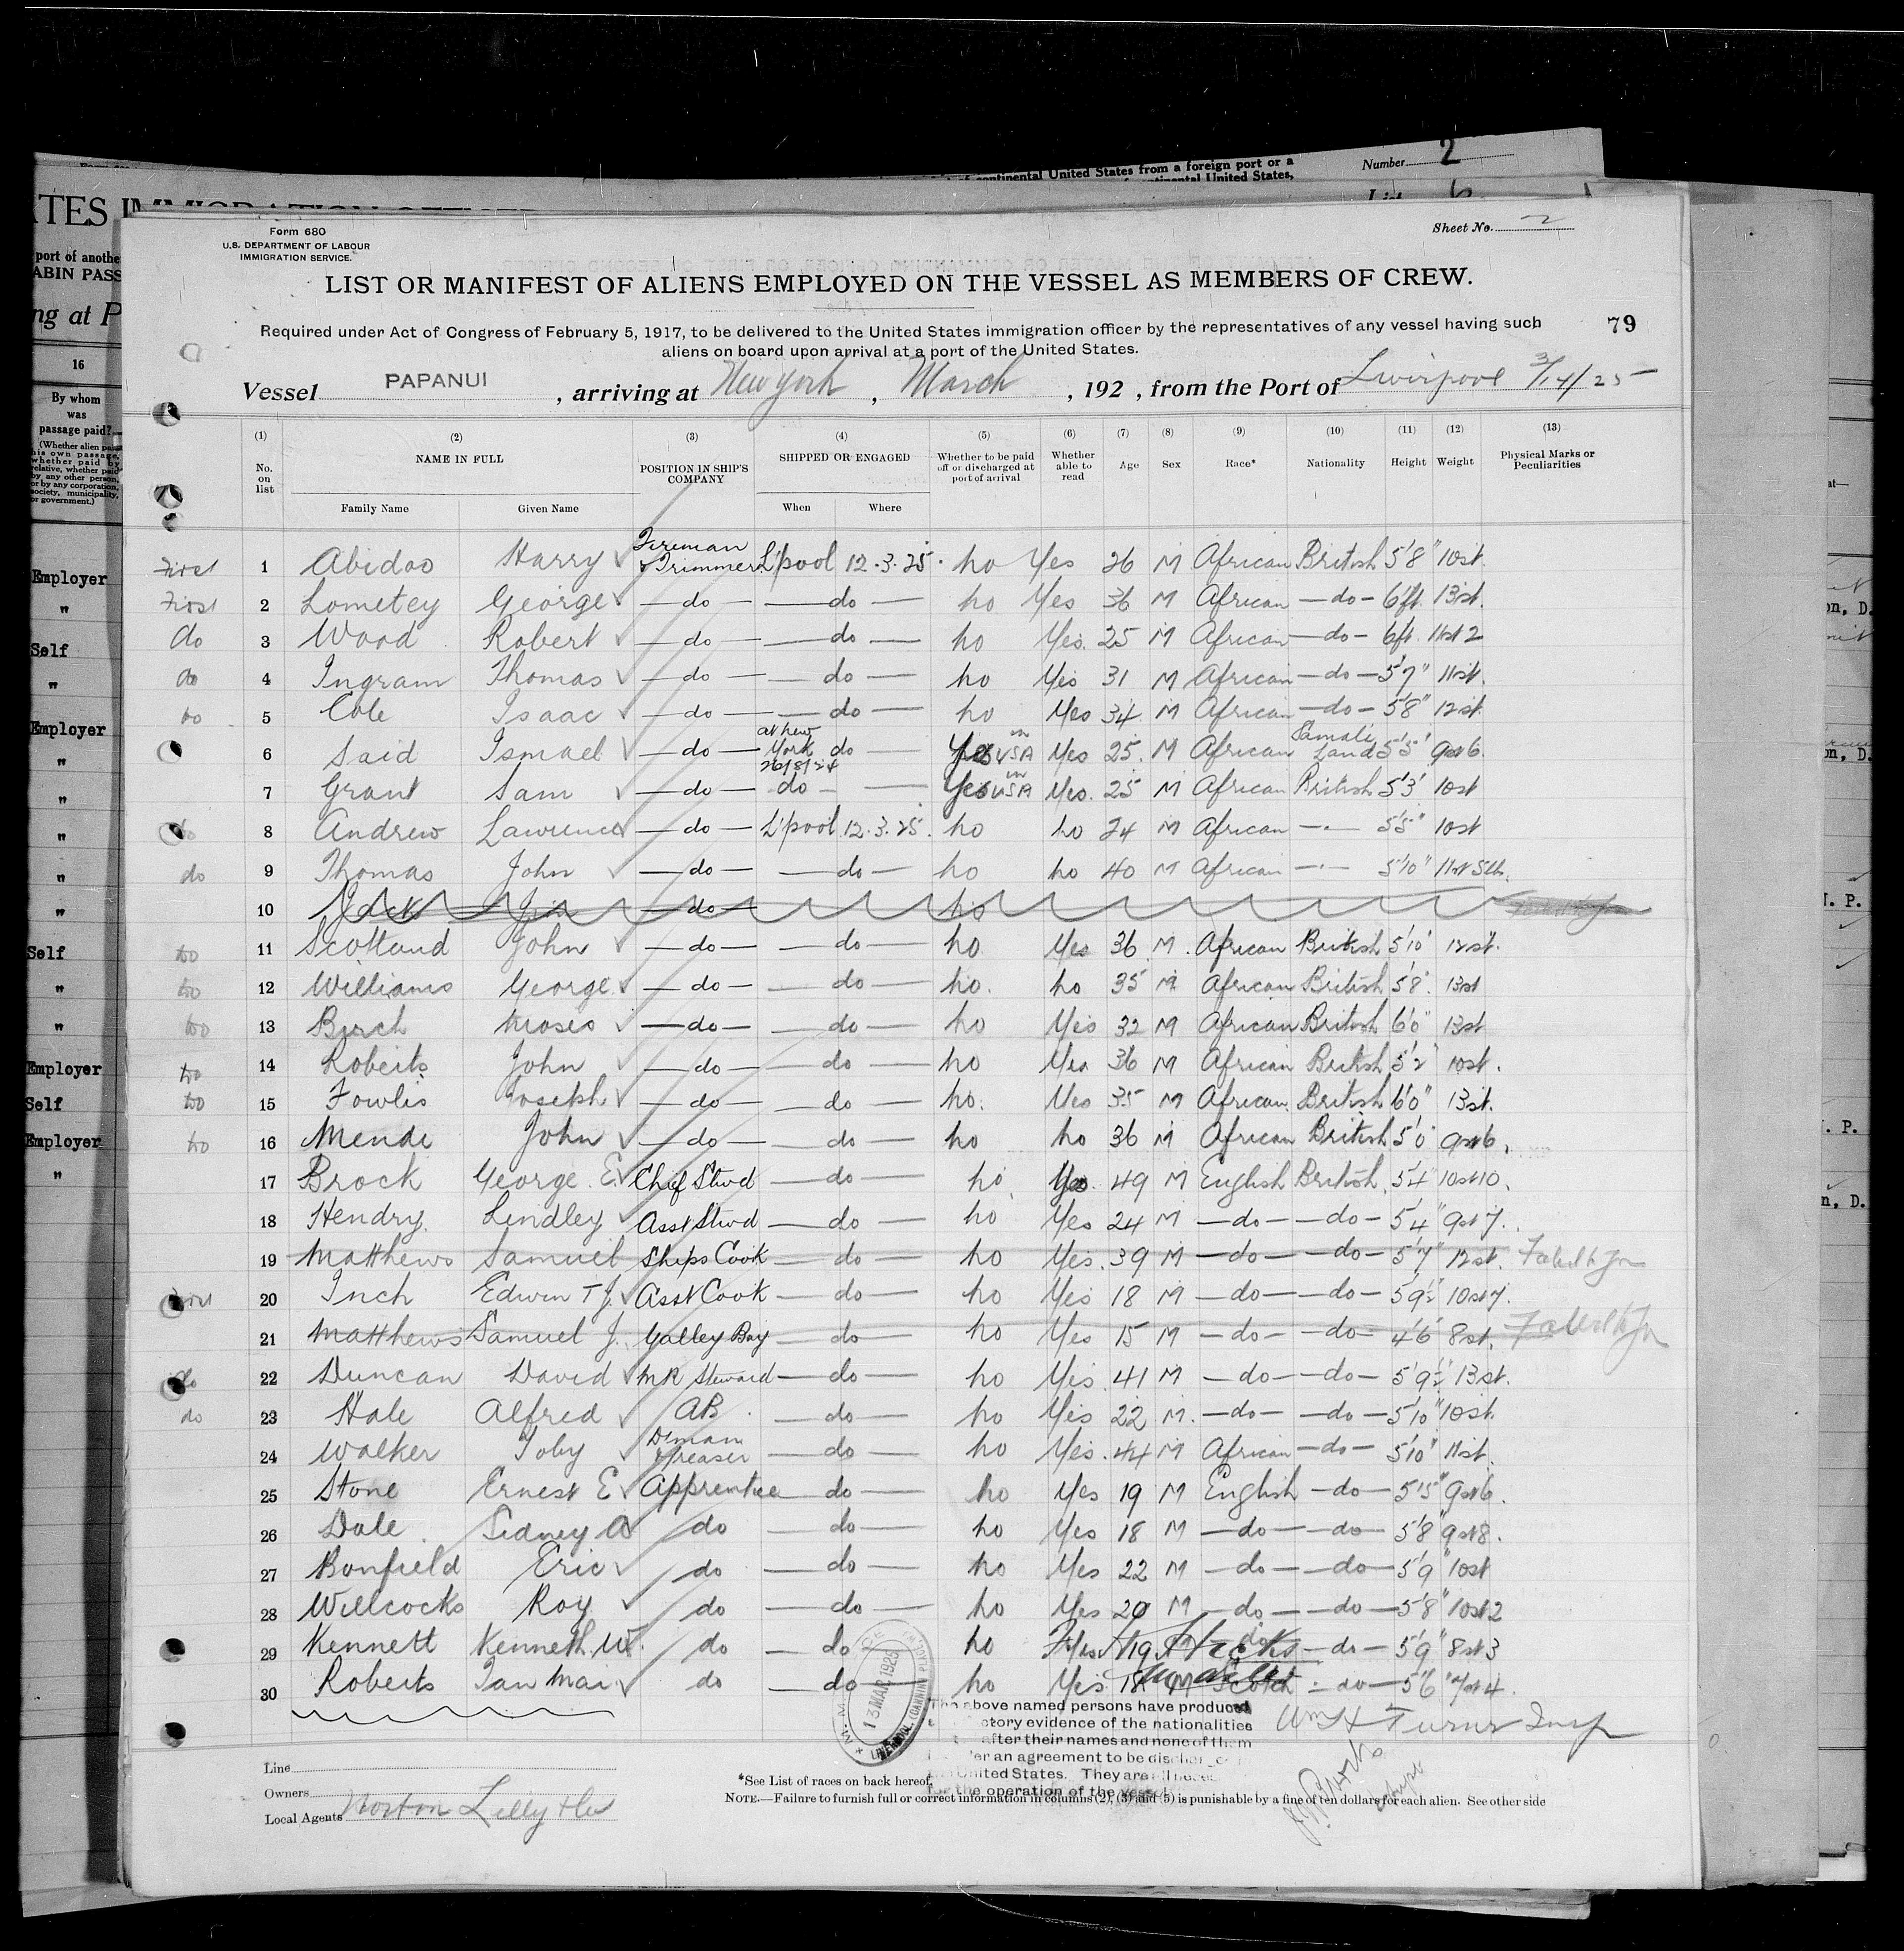 Number 2
continental United States from a foreign port or a
port of anothe
ABIN PASS
ng at P
16
By whom
was
passage paid?
(Whether alien paid
his own passage,
whether paid by
relative, whether paid
by any other person,
or by any corporation,
society, municipality,
or government.)
Employer
"
Self
"
Employer
"
"
"
"
"
Self
"
"
Employer
Self
Employer
"
Form 680
U.S. DEPARTMENT OF LABOUR
IMMIGRATION SERVICE.
Sheet No. 2
LIST OR MANIFEST OF ALIENS EMPLOYED ON THE VESSEL AS MEMBERS OF CREW.
Required under Act of Congress of February 5, 1917, to be delivered to the United States immigration officer by the representatives of any vessel having such
aliens on board upon arrival at a port of the United States.
79
Vessel PAPANUI, arriving at New York, March, 192 , from the Port of Liverpool 3/14/25
(1) (2) (3) (4) (5) (6) (7) (8) (9) (10) (11) (12) (13)
No. on list NAME IN FULL POSITION IN SHIP'S COMPANY SHIPPED OR ENGAGED Whether to be paid off or discharged at port of arrival Whether able to read Age Sex Race* Nationality Height Weight Physical Marks or Peculiarities
Family Name Given Name When Where
First 1 Abidoo Harry Fireman & Trimmer L'pool 12.3.25. no Yes 26 M African British 5'8" 10st.
First 2 Lometey George do do no Yes 36 M African do 6ft. 13st.
do 3 Wood Robert do do no Yes. 25 M African do 6ft 11st 2
do 4 Ingram Thomas do do no Yes 31 M African do 5'7" 11st.
do 5 Cole Isaac do do no Yes 34 M African do 5'8" 12st.
6 Said Ismael do at new York 26/8/24 do Yes in USA Yes 25. M African Somali Land 5'5" 9st 6.
7 Grant Sam do do Yes in USA Yes. 25 M African British 5'3" 10st
do 8 Andrew Lawrence do L'pool 12.3.25. no no 24 M African 5'5" 10st
do 9 Thomas John do do no no 40 M African 5'10" 11st 5lb.
10 Jack do no
do 11 Scotland John do do no Yes 36 M. African British 5'10" 12st.
do 12 Williams George do do no. no 35 M African British 5'8". 13st
do 13 Birch Moses do do no Yes 32 M African British 6'0" 13st
do 14 Roberts John do do no Yes 36 M African British 5'2" 10st.
do 15 Fowlis Joseph do do no. Yes 35 M African British 6'0" 13st.
do 16 Mendi John do do no no 36 M African British 5'0" 9st 6.
17 Brock George. E. Chief Stwd do no. Yes. 49 M English British. 5'4" 10st 10.
18 Hendry. Lindley Asst Stwd do no Yes 24 M do do 5'4" 9st 7.
19 Matthews Samuel Ships Cook do no Yes. 39 M do do 5'7" 12st. Failed to Jn
First 20 Inch Edwin T J. Asst Cook do no Yes 18 M do do 5'9½" 10st 7.
21 Matthews Samuel J. Galley Boy do no Yes 15 M do do 4'6" 8st. Failed to Jn
do 22 Duncan David MR Steward do no Yes. 41 M do do 5'9½" 13st.
do 23 Hale Alfred AB. do no Yes 22 M. do do 5'10" 10st.
24 Walker Toby D'man Greaser do no Yes. 44 M African do 5'10" 11st.
25 Stone Ernest E Apprentice do no Yes 19 M English do 5'5" 9st 6.
26 Dale. Sidney A do do no Yes 18 M do do 5'8" 9st 8.
27 Bonfield Eric do do no Yes 22 M do do 5'9" 10st
28 Willcocks Roy do do no Yes 20 M do do 5'8" 10st 2
29 Kennett Kenneth. W. do do no Yes 19 M do do 5'9" 8st 3
30 Roberts Ian Mai do do no Yes 18 M Scotch do 5'6" 7st 4.
13 MAR 1925
LIVERPOOL
The above named persons have produced
tory evidence of the nationalities
after their names and none of them
er an agreement to be
United States. They are
for the operation of the vessel.
Wm H Turner Insp
Line
Owners
Local Agents Norton Lilly & Co
*See List of races on back hereof.
NOTE.—Failure to furnish full or correct information in columns (2), (3) and (5) is punishable by a fine of ten dollars for each alien. See other side